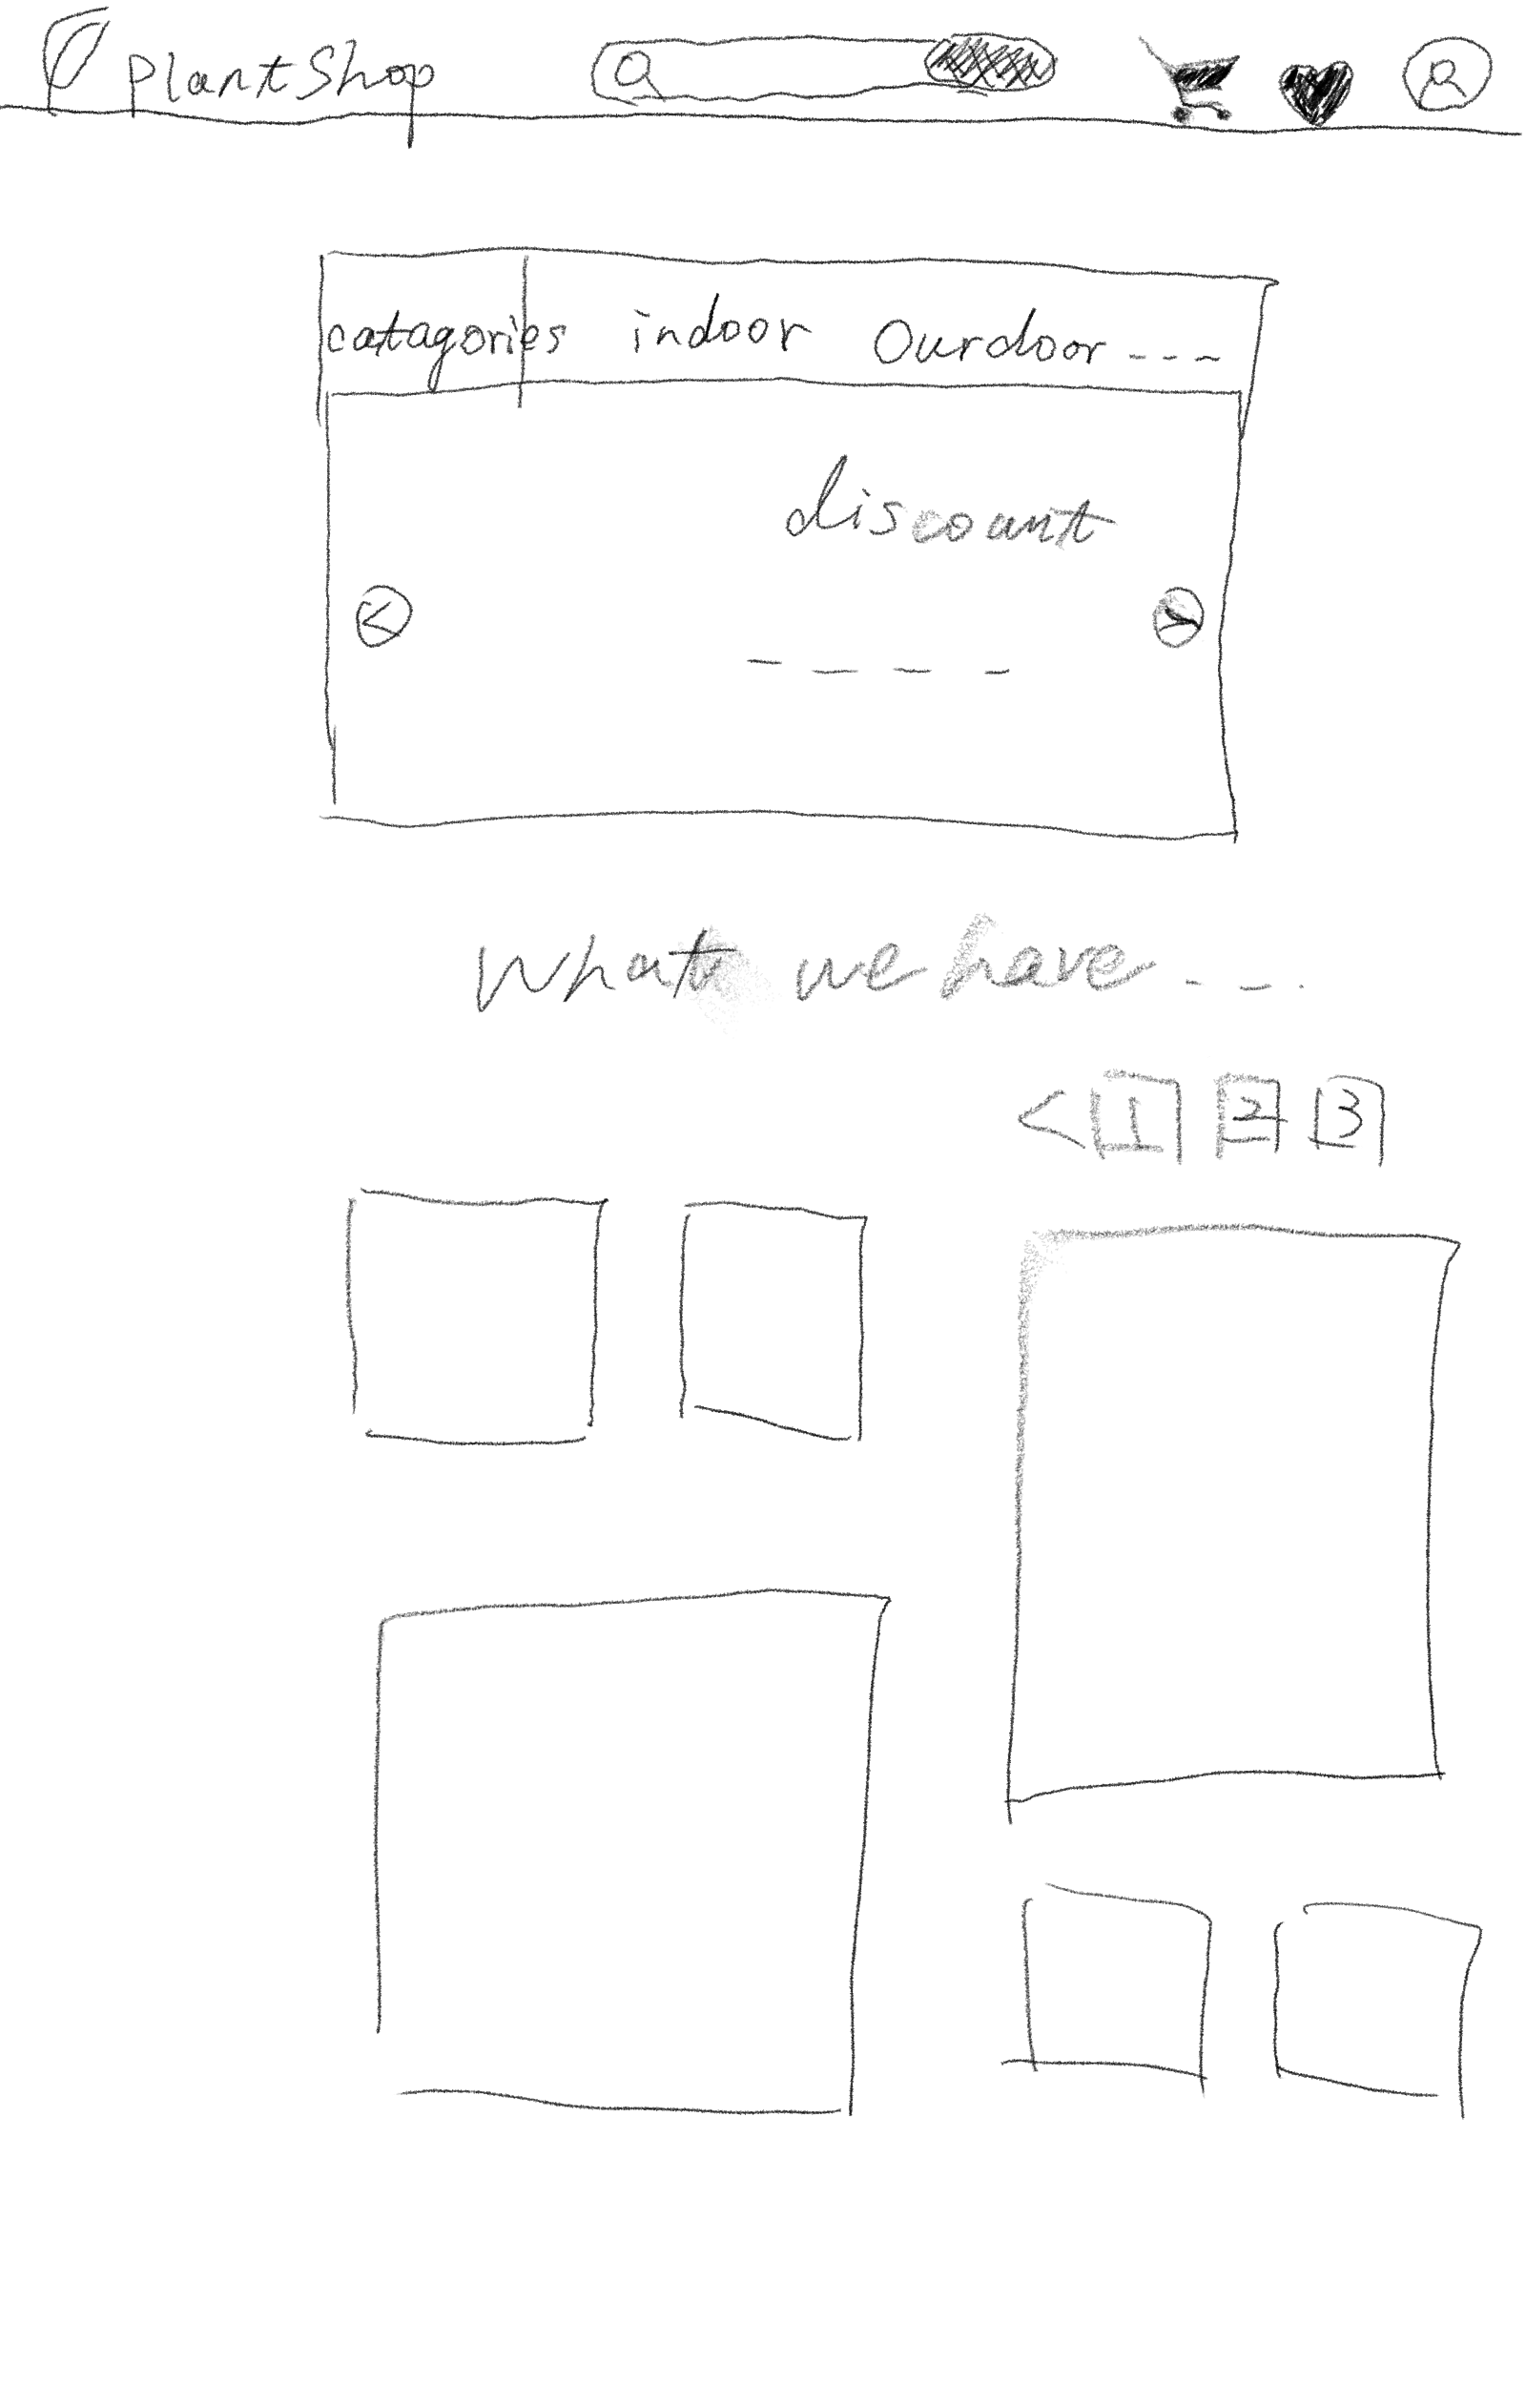 plantshop
catagories indoor Ourdoor---
discount
----
What we have---
< 1 2 3